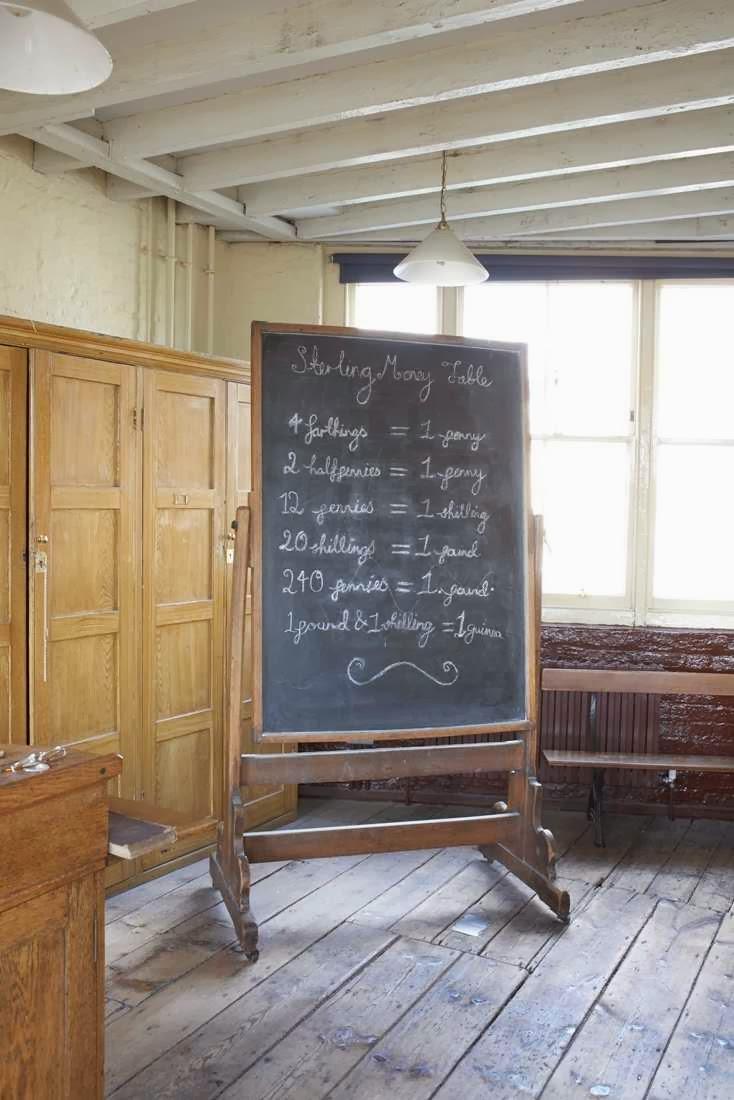 Sterling Money Table
4 farthings = 1 penny
2 halfpennies = 1 penny
12 pennies = 1 shilling
20 shillings = 1 pound
240 pennies = 1 pound.
1 pound & 1 shilling = 1 guinea